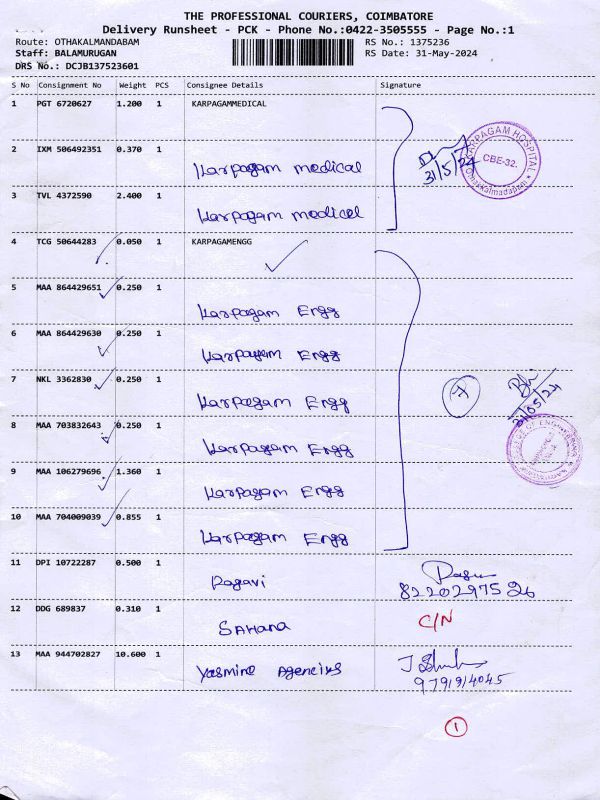 THE PROFESSIONAL COURIERS, COIMBATORE
Delivery Runsheet - PCK - Phone No.:0422-3505555 - Page No.:1
Route: OTHAKALMANDABAM RS No.: 1375236
Staff: BALAMURUGAN RS Date: 31-May-2024
DRS No.: DCJB137523601
S No Consignment No Weight PCS Consignee Details Signature
1 PGT 6720627 1.200 1 KARPAGAMMEDICAL
2 IXM 506492351 0.370 1 Karpagam medical
31/5/24
KARPAGAM HOSPITAL
CBE-32.
3 TVL 4372590 2.400 1 Karpagam medical
4 TCG 50644283 0.050 1 KARPAGAMENGG
5 MAA 864429651 0.250 1 Karpagam Engg
6 MAA 864429630 0.250 1 Karpagam Engg
7 NKL 3362830 0.250 1 Karpagam Engg 7
31/05/24
8 MAA 703832643 0.250 1 Karpagam Engg
9 MAA 106279696 1.360 1 Karpagam Engg
10 MAA 704009039 0.855 1 Karpagam Engg
11 DPI 10722287 0.500 1 Ragavi 8220297526
12 DDG 689837 0.310 1 SAHana C/N
13 MAA 944702827 10.600 1 Yasmine Agencies
9791914045
1